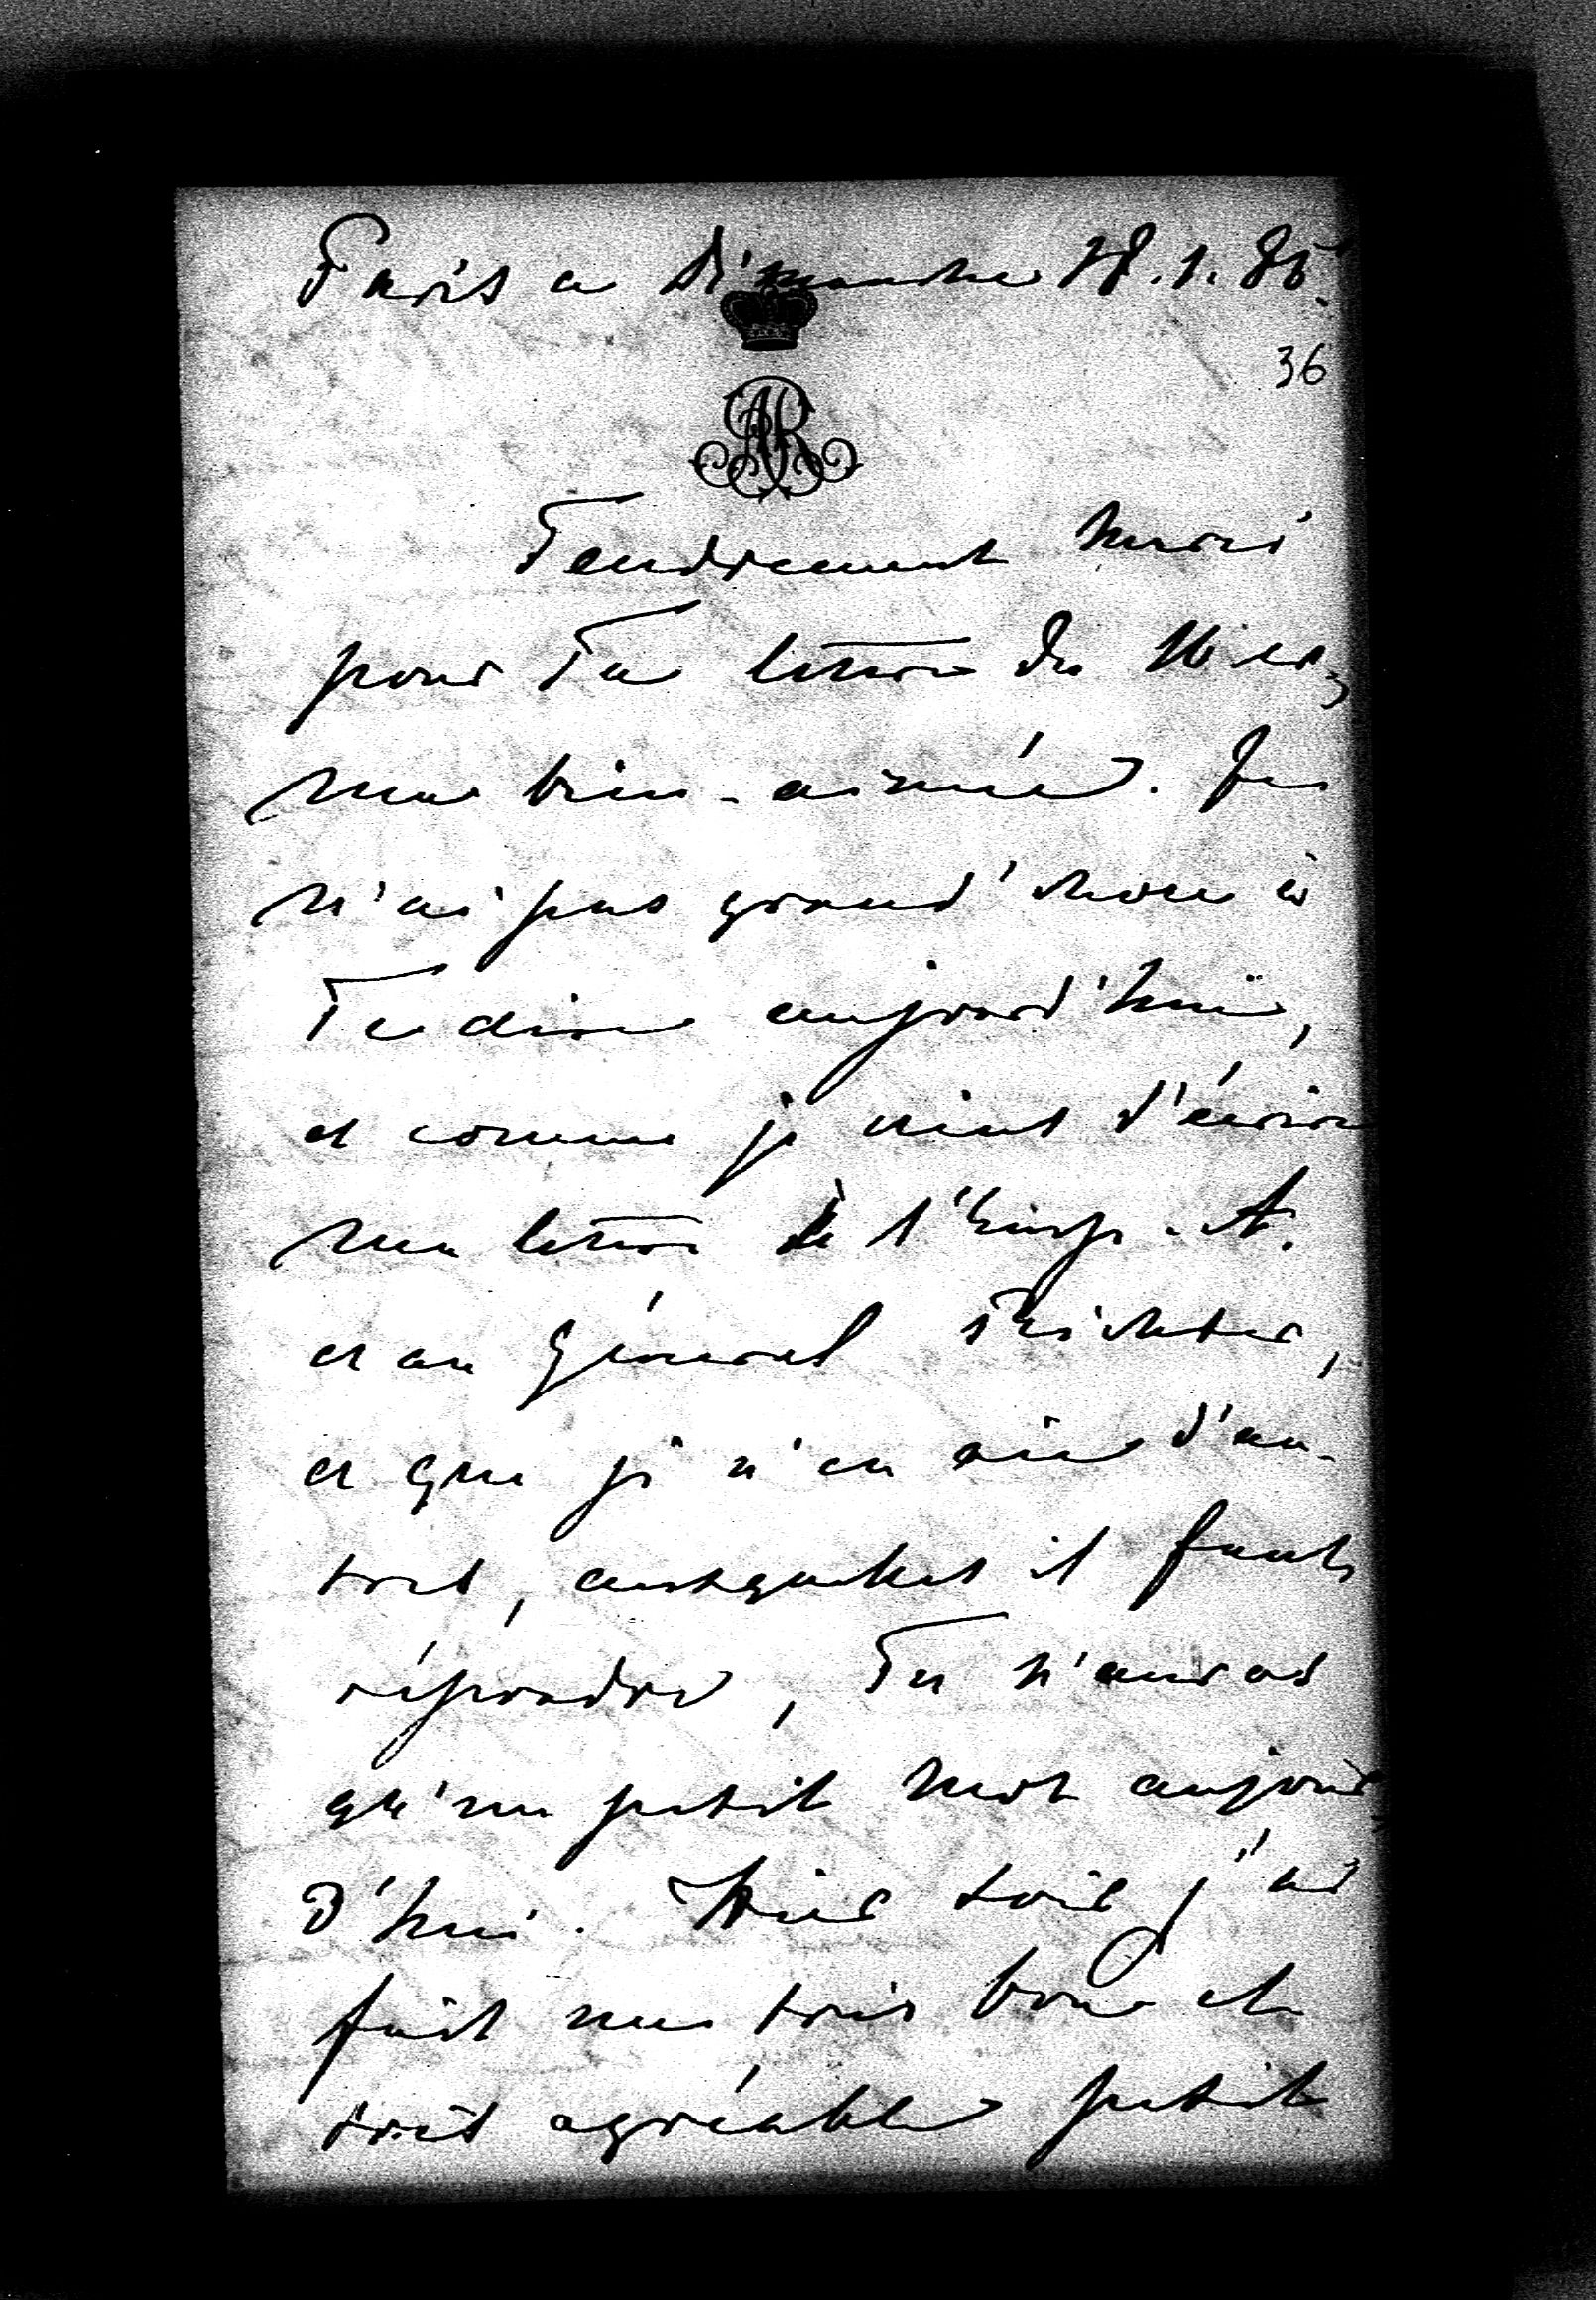 Paris ce Dimanche 18.1.85.
36
AR
Tendrement merci
pour Ta lettre du
ma bien-aimée. Je
n'ai pas grand'chose à
Te dire aujourd'hui,
et comme je viens d'écrire
une lettre à l'Emp. A.
et au Général Richter,
et que j'en ai d'au-
tres, auxquelles il faut
répondre, Tu n'auras
qu'un petit mot aujour-
d'hui. Hier soir j'ai
fait un très bon et
très agréable petit